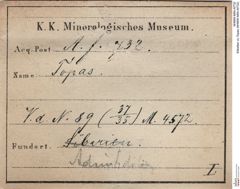 K. K. Minerologisches Museum.
Acq.-Post A. f. 732.
Name: Topas.
V. d. N. 89 (37/35) M. 4572.
Fundort. Sibirien.
I